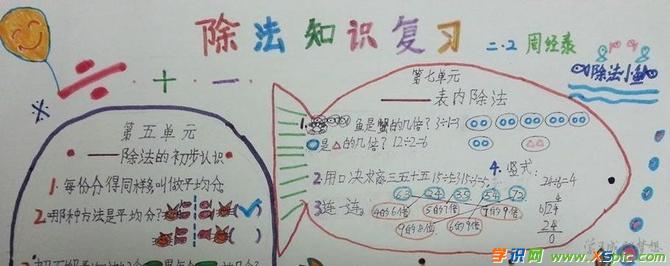 除法知识复习
二.2 周经录
除法小鱼
第五单元
除法的初步认识
1.每份分得同样多,叫做平均分。
2.哪种方法是平均分?
第七单元
表内除法
1. 鱼是蟹的几倍? 3÷1=3
○是△的几倍? 12÷2=6
2.用口决求商 三五十五 15÷5=3 15÷3=5
3.连一连。
63 24 35 54 72
4的6倍 5的7倍 7的9倍
9的8倍 6的9倍
4.竖式:
24÷6=4
4
6√24
24
0
学习成就梦想
学识网 www.xspic.com